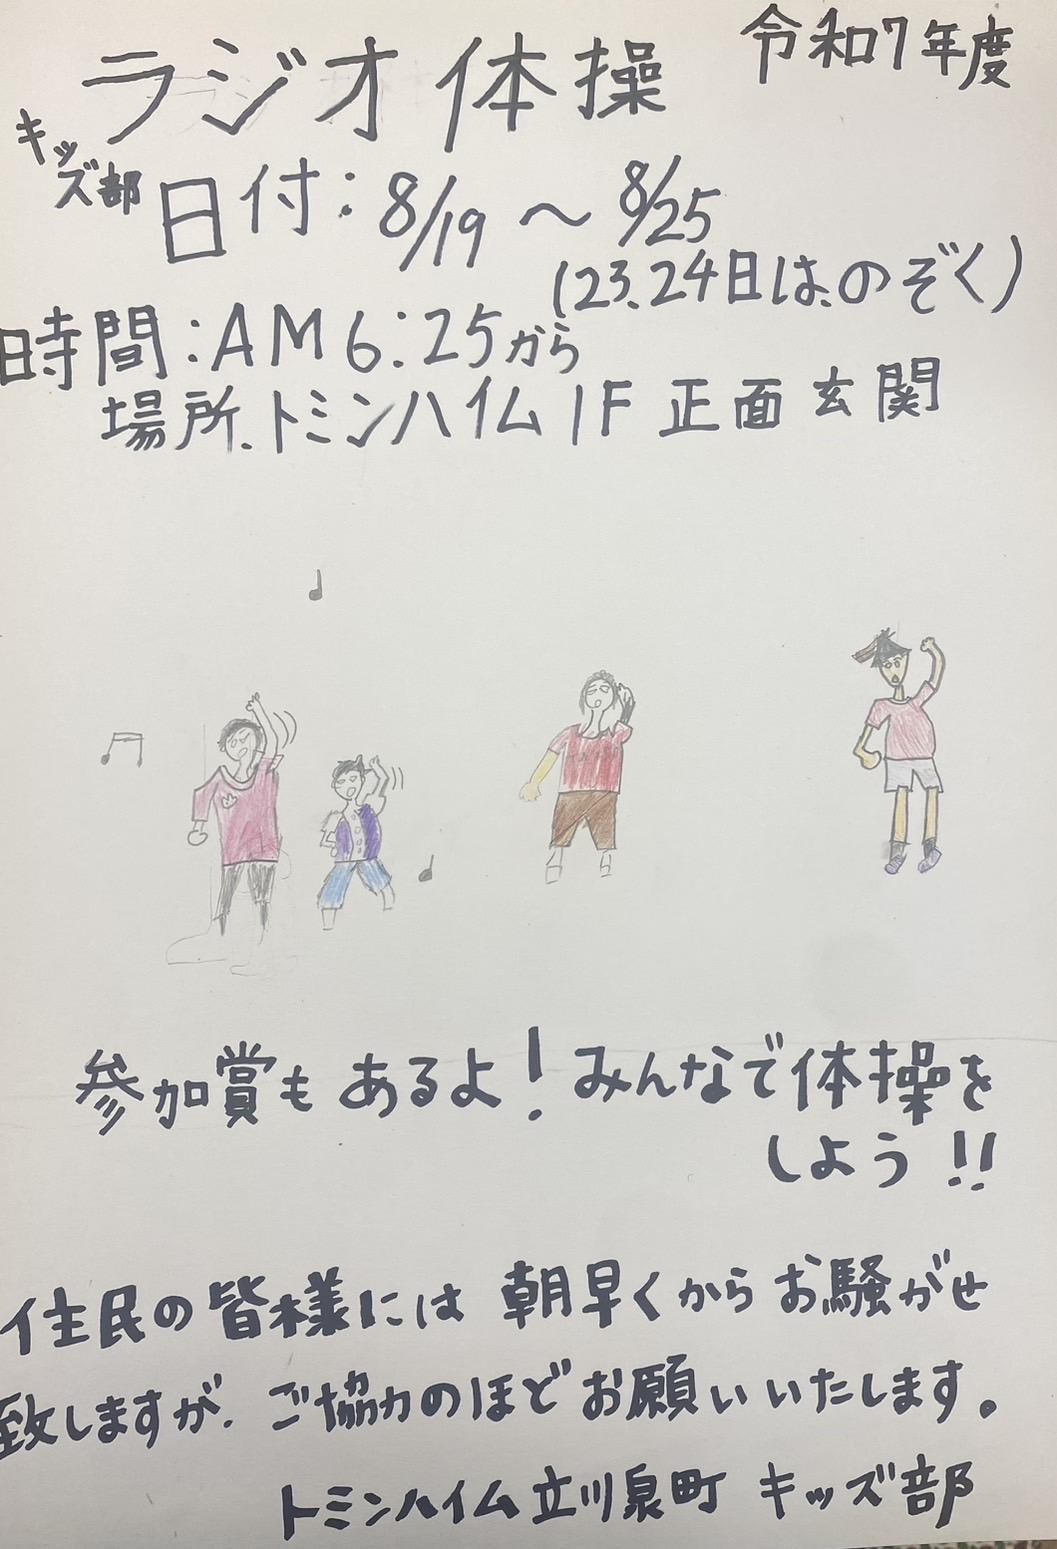 令和7年度
ラジオ体操
キッズ部
日付:8/19〜8/25
(23.24日は、のぞく)
時間:AM6:25から
場所.トミンハイム1F 正面玄関
参加賞もあるよ!みんなで体操を
しよう!!
住民の皆様には朝早くからお騒がせ
致しますが、ご協力のほどお願いいたします。
トミンハイム立川泉町 キッズ部